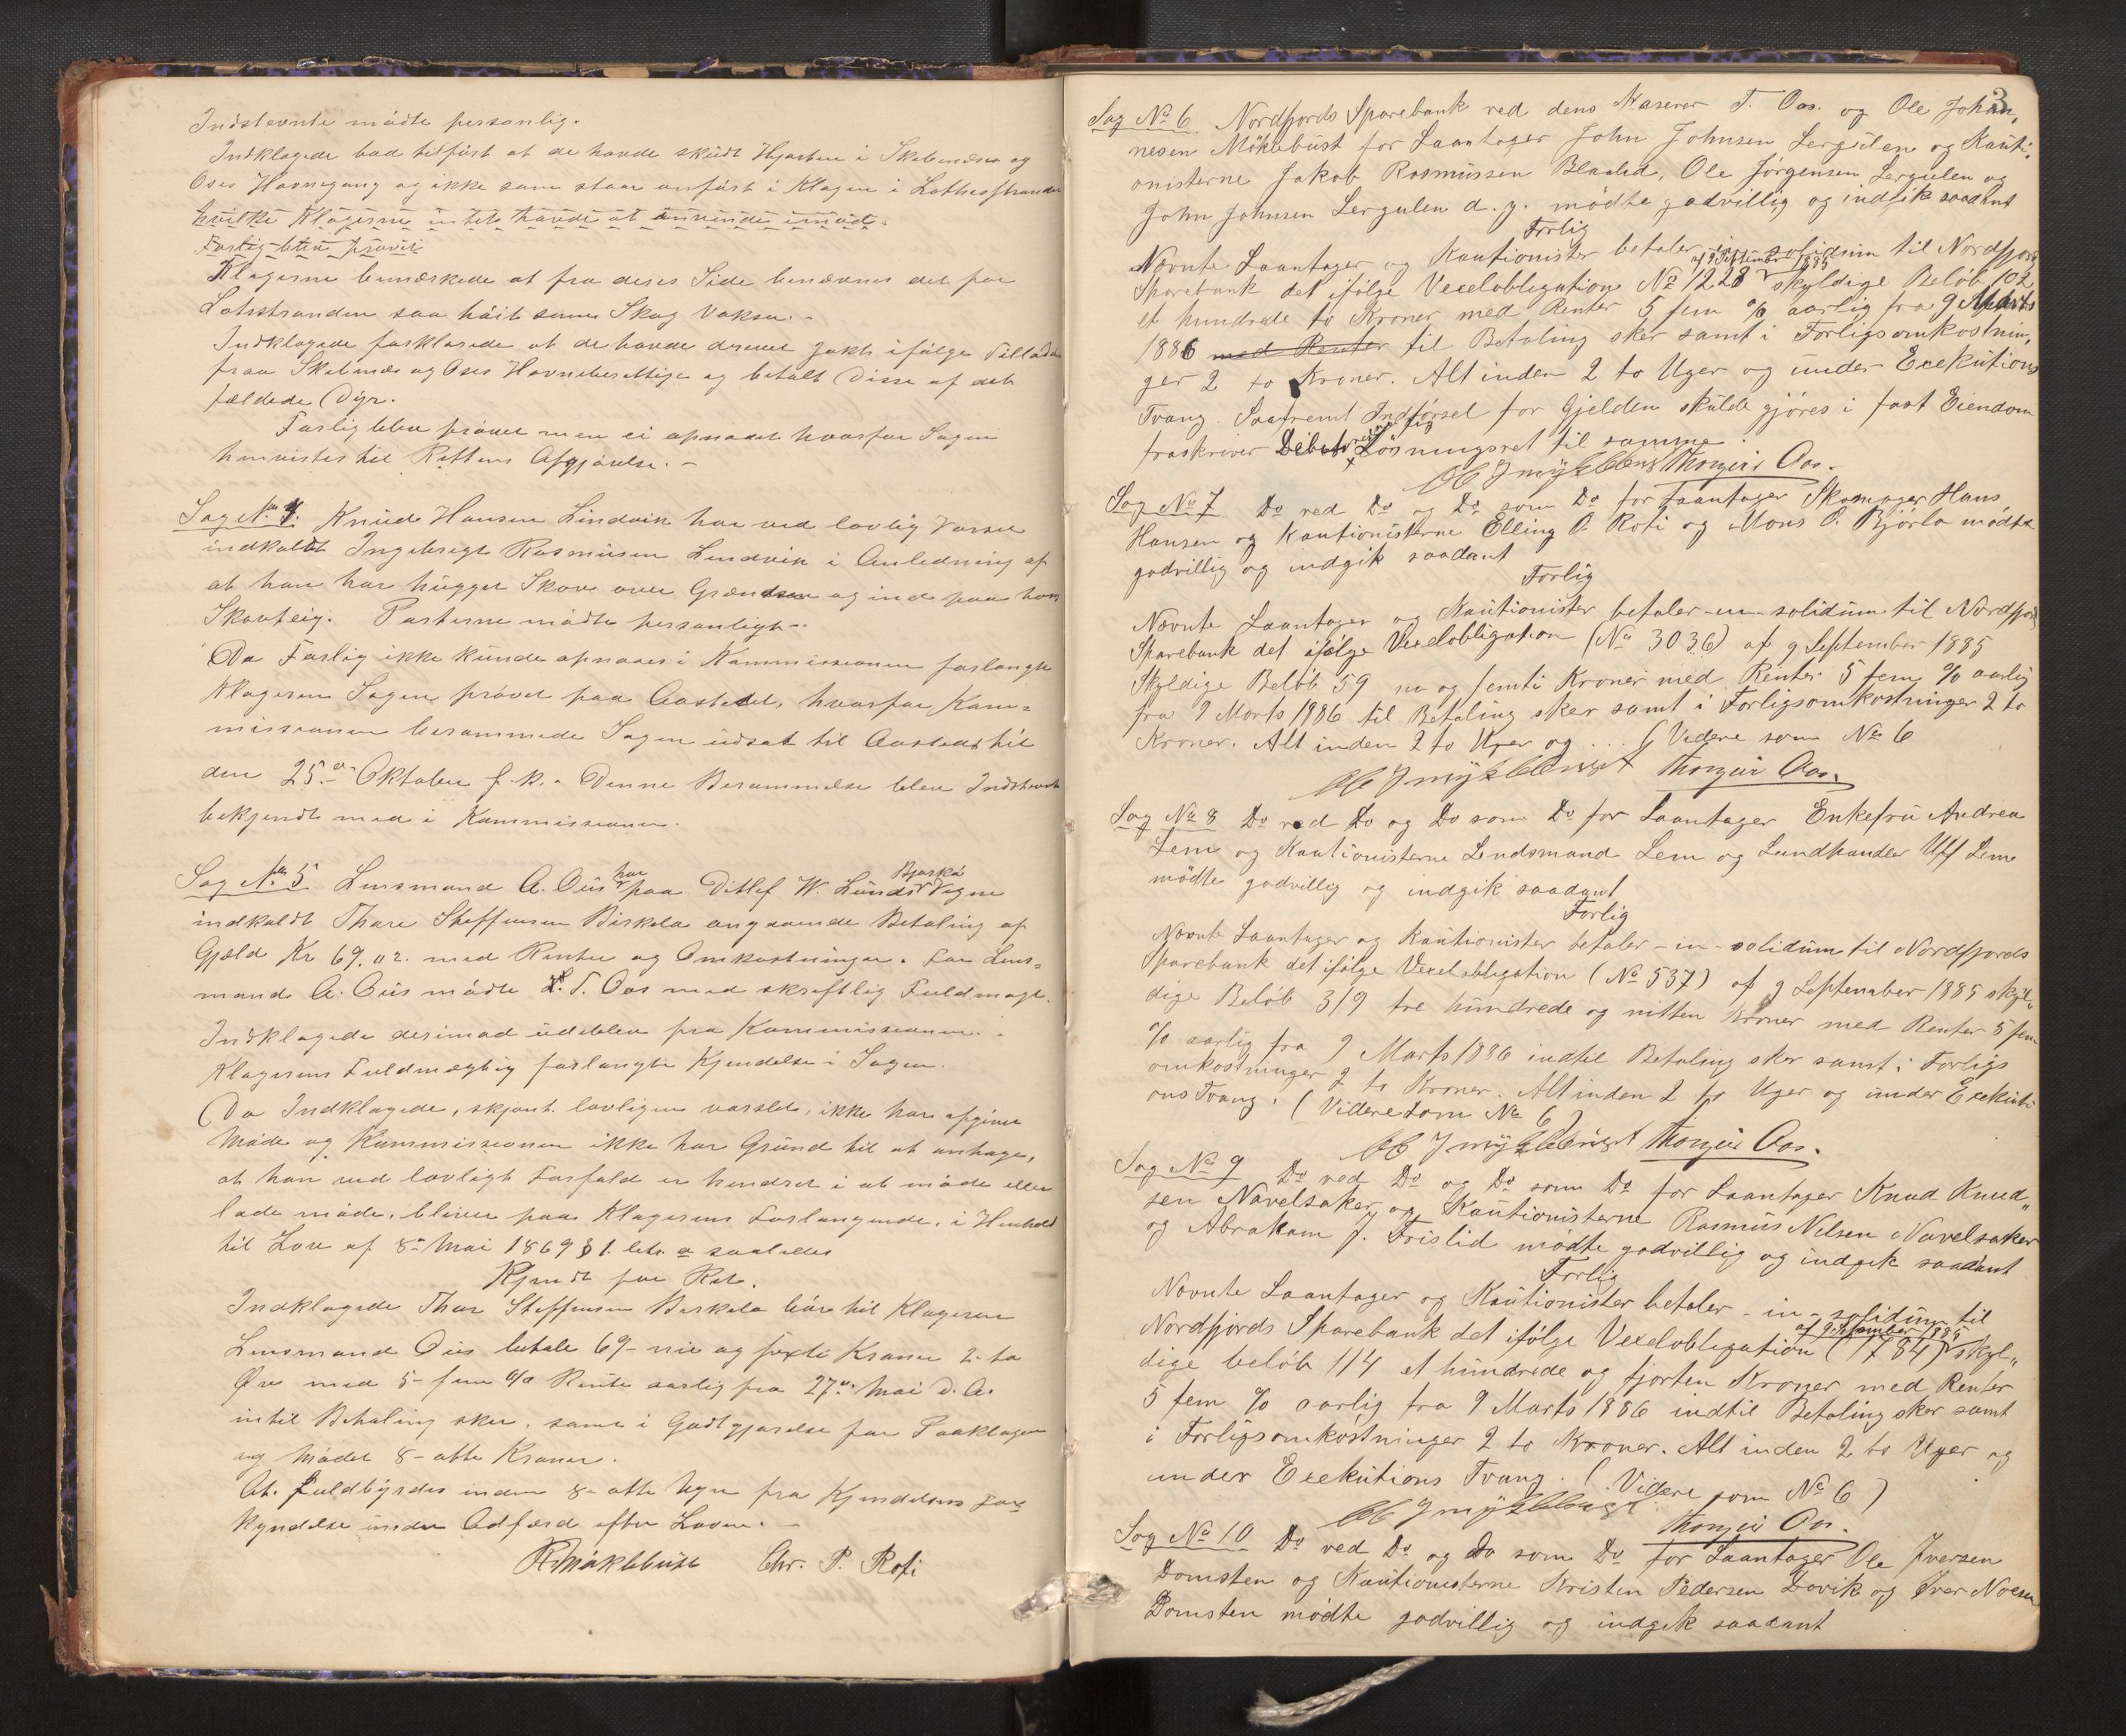 Indstevnte mødte personlig.
Indklagede bad tilført at de havde skudt Hjorten i Skibenæsets og
Oses Havnegang og ikke som staar anført i Klagen i Lothesstranden
hvilke Klagerne intet havde at anvende imod.
Forlig blev prøvet
Klagerne bemærkede at fra deres Side benævnes det for
Lothstranden saa høit som Skog vokser.
Indklagede forklarede at de havde drevet Jakt ifølge Tilladelse
fraa Skibenæs og Oses Havneberettige og betalt disse af det
fældede Dyr.
Forlig blev prøvet men ei opnaaet hvorfor Sagen
henvistes til Rettens Afgjørelse. -
Sag No 4. Knud Hansen Lindvik har ved lovlig Varsel
indkaldt Ingebregt Rasmusen Lindvik i Anledning af
at han har hugget Skov over Grændsen og ind paa hans
Skovteig. Parterne mødte personligt -.
Da Forlig ikke kunde opnaaes i Kommissionen forlangte
Klageren Sagen prøvet paa Aastedet, hvorfor Kom=
missionen berammede Sagen udsat til Aastedet til
den 25de Oktober f. k. - Denne Berammelse blev Indstevnte
bekjendt med i Kommissionen.
Sag No 5 Lensmand A. Øiis har paa Ditlef W. Lunds Bjorkå Vegne
indkaldt Thore Steffensen Birkelo angaaende Betaling af
Gjæld Kr 69.02. med Renter og Omkostninger. For Lens=
mand A. Øiis mødte T. Oos med skriftlig Fuldmagt.
Indklagede derimod udeblev fra Kommissionen.
Klagerens Fuldmægtig forlangte Kjendelse i Sagen.
Da Indklagede, skjønt lovligen varslet, ikke har afgivet
Møde og Kommissionen ikke har Grund til at antage,
at han ved lovligt Forfald er hindret i at møde eller
lade møde, bliver paa Klagerens Forlangende, i Henhold
til Lov af 8de Mai 1869 § 1. litr. a saaledes
Kjendt for Ret.
Indklagede Thore Steffensen Birkelo bør til Klageren
Lensmand Øiis betale 69 - nie og sexti Kroner 2 to
Øre med 5 - fem o/o Rente aarlig fra 27de Mai d. A.
intil Betaling sker, samt i Godtgjørelse for Paaklagen
og Mødet 8 - otte Kroner.
At fuldbyrdes inden 8 - otte Dage fra Kjendelsens For
kyndelse under Adfærd efter Loven. -
R Møklebust Chr. P. Roti
3
Sag No 6 Nordfjords Sparebank ved dens Kaserer T. Oos. og Ole Johan,
nesen Möklebust for Laantager John Johnsen Lergulen og Kauti,
onisterne Jakob Rasmussen Blaalid, Ole Jørgensen Lergulen og
John Johnsen Lergulen d. y. mødte godvillig og indgik saadant
Forlig
Nævnte Laantager og Kautionister betaler in solidum til Nordfjords
Sparebank det ifølge Vexelobligation No 1228 af 9 September 1885 skyldige Beløb 102
et hundrede to Kroner med Renter 5 fem o/o aarlig fra 9 Marts
1886 med Renter til Betaling sker samt i Forligsomkostnin,
ger 2 to Kroner. Alt inden 2 to Uger og under Exekutions
Tvang. Saafremt Indførsel for Gjelden skulde gjøres i fast Eiendom
fraskriver Debitor sig Løsningsret til samme.
Ole J Myklebust Thorger Oos.
Sag No 7 Do ved Do og Do som Do for Laantager Skomager Hans
Hansen og Kautionisterne Elling O. Roti og Mons O. Bjørlo mødte
godvillig og indgik saadant
Forlig
Nævnte Laantager og Kautionister betaler -in- solidum til Nordfjords
Sparebank det ifølge Vexelobligation (No 3036) af 9 September 1885
Skyldige Beløb 59 ni og femti Kroner med Renter 5 fem o/o aarlig
fra 9 Marts 1886 til Betaling sker samt i Forligsomkostninger 2 to
Kroner. Alt inden 2 to Uger og ... ( Videre som No 6
Ole J Myklebust Thorger Oos.
Sag No 8 Do ved Do og Do som Do for Laantager Enkefru Andrea
Lem og Kautionisterne Lendsmand Lem og Landhandler Ulf Lem
mødte godvillig og indgik saadant
Forlig
Nævnte Laantager og Kautionister betaler - in - solidum til Nordfjords
Sparebank det ifølge Vexelobligation (No 537) af 9 September 1885 skyl„
dige Beløb 319 tre hundrede og nitten Kroner med Renter 5 fem
o/o aarlig fra 9 Marts 1886 indtil Betaling sker samt i Forligs
omkostninger 2 to Kroner. Alt inden 2 to Uger og under Exekuti
ons Tvang. (Videre som No 6)
Ole J Myklebust Thorger Oos.
Sag No 9 Do ved Do og Do som Do for Laantager Knud Knud„
sen Navelsaker og Kautionisterne Rasmus Nilsen Navelsaker
og Abraham J. Frislid mødte godvillig og indgik saadant
Forlig
Nævnte Laantager og Kautionister betaler - in - solidum til
Nordfjords Sparebank det ifølge Vexelobligation (784) af 9 September 1885 skyl„
dige beløb 114 et hundrede og fjorten Kroner med Renter
5 fem o/o aarlig fra 9 Marts 1886 indtil Betaling sker samt
i Forligsomkostninger 2 to Kroner. Alt inden 2 to Uger og
under Exekutions Tvang. ( Videre som No 6 )
Ole J Myklebust Thorger Oos.
Sag No 10 Do ved Do og Do som Do for Laantager Ole Iversen
Domsten og Kautionisterne Kristen Pedersen Lovik og Iver
Domsten mødte godvillig og indgik saadant